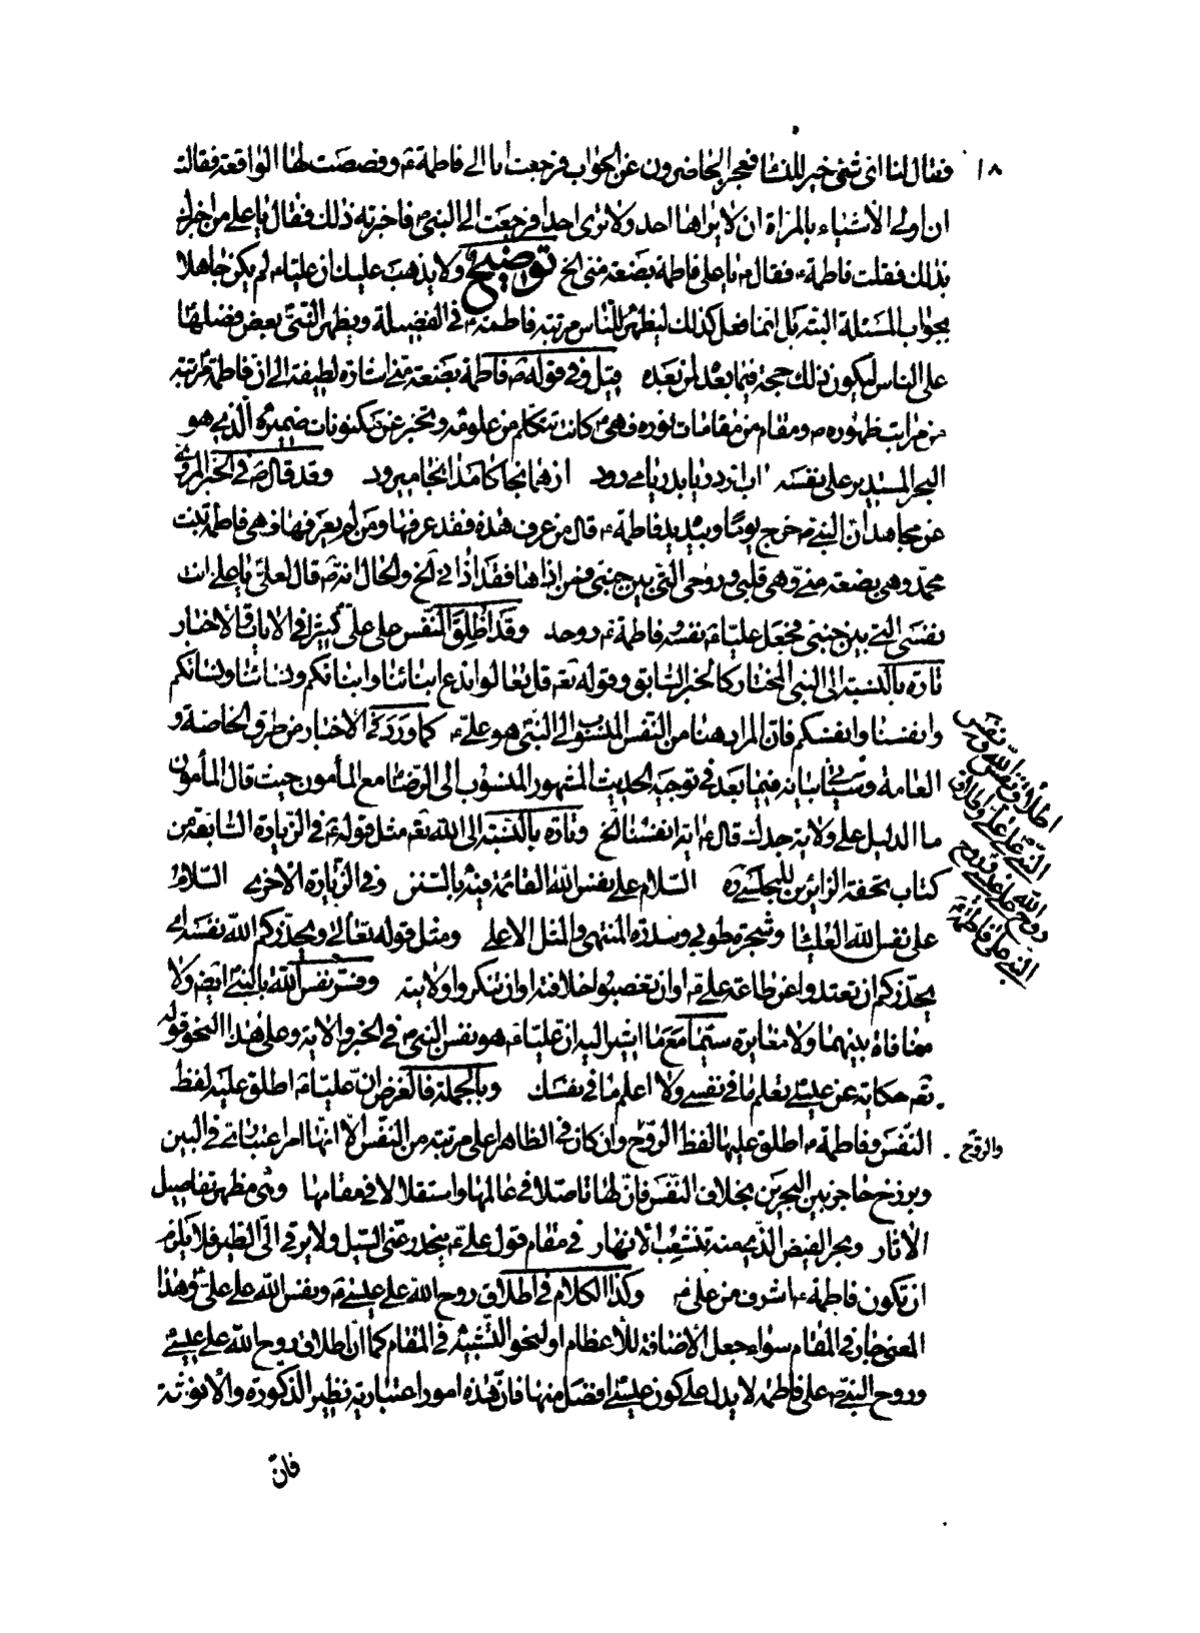 ١٨
فقال لنا ای شیئ خیر للنساء فعجز الحاضرون عن الجواب فرجعت انا الی فاطمة ع وقصصت لها الواقعة فقالت
ان اولی الاشیاء بالمراة ان لا یراها احد ولا تری احدا فرجعت الی النبی ص فاخبرته ذلك فقال یا علی من اخبرك
بذلك فقلت فاطمة ع فقال ص یا علی فاطمة بضعة منی الخ توضیح ولا یذهب علیك ان علیا ع لم یکن جاهلا
بجواب المسئلة البتة بل انما فعل کذلك لیظهر للناس مرتبة فاطمة ع فی الفضیلة ویظهر النبی بعض فضلها
علی الناس لیکون ذلك حجة فیما بعد لمن بعده قیل وفی قوله ص فاطمة بضعة منی اشارة لطیفة الی ان فاطمة مرتبة
من مراتب ظهوره ص ومقام من مقامات نوره فهی ع کانت تتکلم من علومه وتخبر عن مکنونات ضمیره الذی هو
البحر المستدیر علی نفسه اب از دریا بدریا می رود از همانجا کامد انجا میرود وقد قال ص فی الخبر المروی
عن مجاهد ان النبی ص خرج یوما وبیده ید فاطمة ع قال من عرف هذه فقد عرفها ومن لم یعرفها فهی فاطمة بنت
محمد وهی بضعة منی وهی قلبی وروحی التی بین جنبی فمن اذاها فقد اذانی الخ والحال انه ص قال لعلی یا علی انت
نفسی التی بین جنبی فجعل علیا ع نفسه وفاطمة ع روحه وقد اطلق النفس علی علی کثیرا فی الایات والاخبار
تارة بالنسبة الی النبی المختار کالخبر السابق وقوله تع قل تعالوا ندع ابنائنا وابنائکم ونسائنا ونسائکم
وانفسنا وانفسکم فان المراد هنا من النفس المنسوب الی النبی هو علی ع کما ورد فی الاخبار من طرق الخاصة و
العامة وسیاتی بیانه فیما بعد فی توجیه الحدیث المشهور المنسوب الی الرضا مع المأمون حیث قال المأمون
ما الدلیل علی ولایة جدك قال ع ایة انفسنا الخ وتارة بالنسبة الی الله تع مثل قوله ع فی الزیارة السابعة من
کتاب تحفة الزائرین للمجلسی ره السلام علی نفس الله القائمة فیه بالسنن وفی الزیارة الاخری السلام
علی نفس الله العلیا وشجرة طوبی وسدرة المنتهی والمثل الاعلی ومثل قوله تعالی ویحذرکم الله نفسه ای
یحذرکم ان تعتدوا عن طاعة علی ع او ان تغصبوا خلافته او ان تنکروا ولایته وفسر نفس الله بالنبی ایضا ولا
منافاة بینهما ولا مغایرة سیما مع ما اشیر الیه ان علیا ع هو نفس النبی ص فی الخبر والایة وعلی هذا النحو قوله
تع حکایة عن عیسی تعلم ما فی نفسی ولا اعلم ما فی نفسك وبالجملة فالغرض ان علیا ع اطلق علیه لفظ
النفس وفاطمة ع اطلق علیها لفظ الروح وان کان فی الظاهر اعلی مرتبة من النفس الا انها امر اعتباری فی البین
وبرزخ حاجز بین البحرین بخلاف النفس فان لها تاصلا فی عالمها واستقلالا فی مقامها وهی مظهر تفاصیل
الاثار وبحر الفیض الذی منه تنشعب الانهار فی مقام قول علی ع ینحدر عنی السیل ولا یرقی الی الطیر فلا یلزم
ان تکون فاطمة ع اشرف من علی ع وکذا الکلام فی اطلاق روح الله علی عیسی ع ونفس الله علی علی ع وهذا
المعنی جار فی المقام سواء جعل الاضافة للاعظام او لنحو التشبیه فی المقام کما ان اطلاق روح الله علی عیسی
وروح النبی ص علی فاطمة لا یدل علی کون عیسی افضل منها فان هذه امور اعتباریة نظیر الذکورة والانوثة
فان
اطلاق نفس الله ونفس
النبی علی علی واطلاق
الله
روح علی عیسی وروح
النبی علی فاطمة
والروح